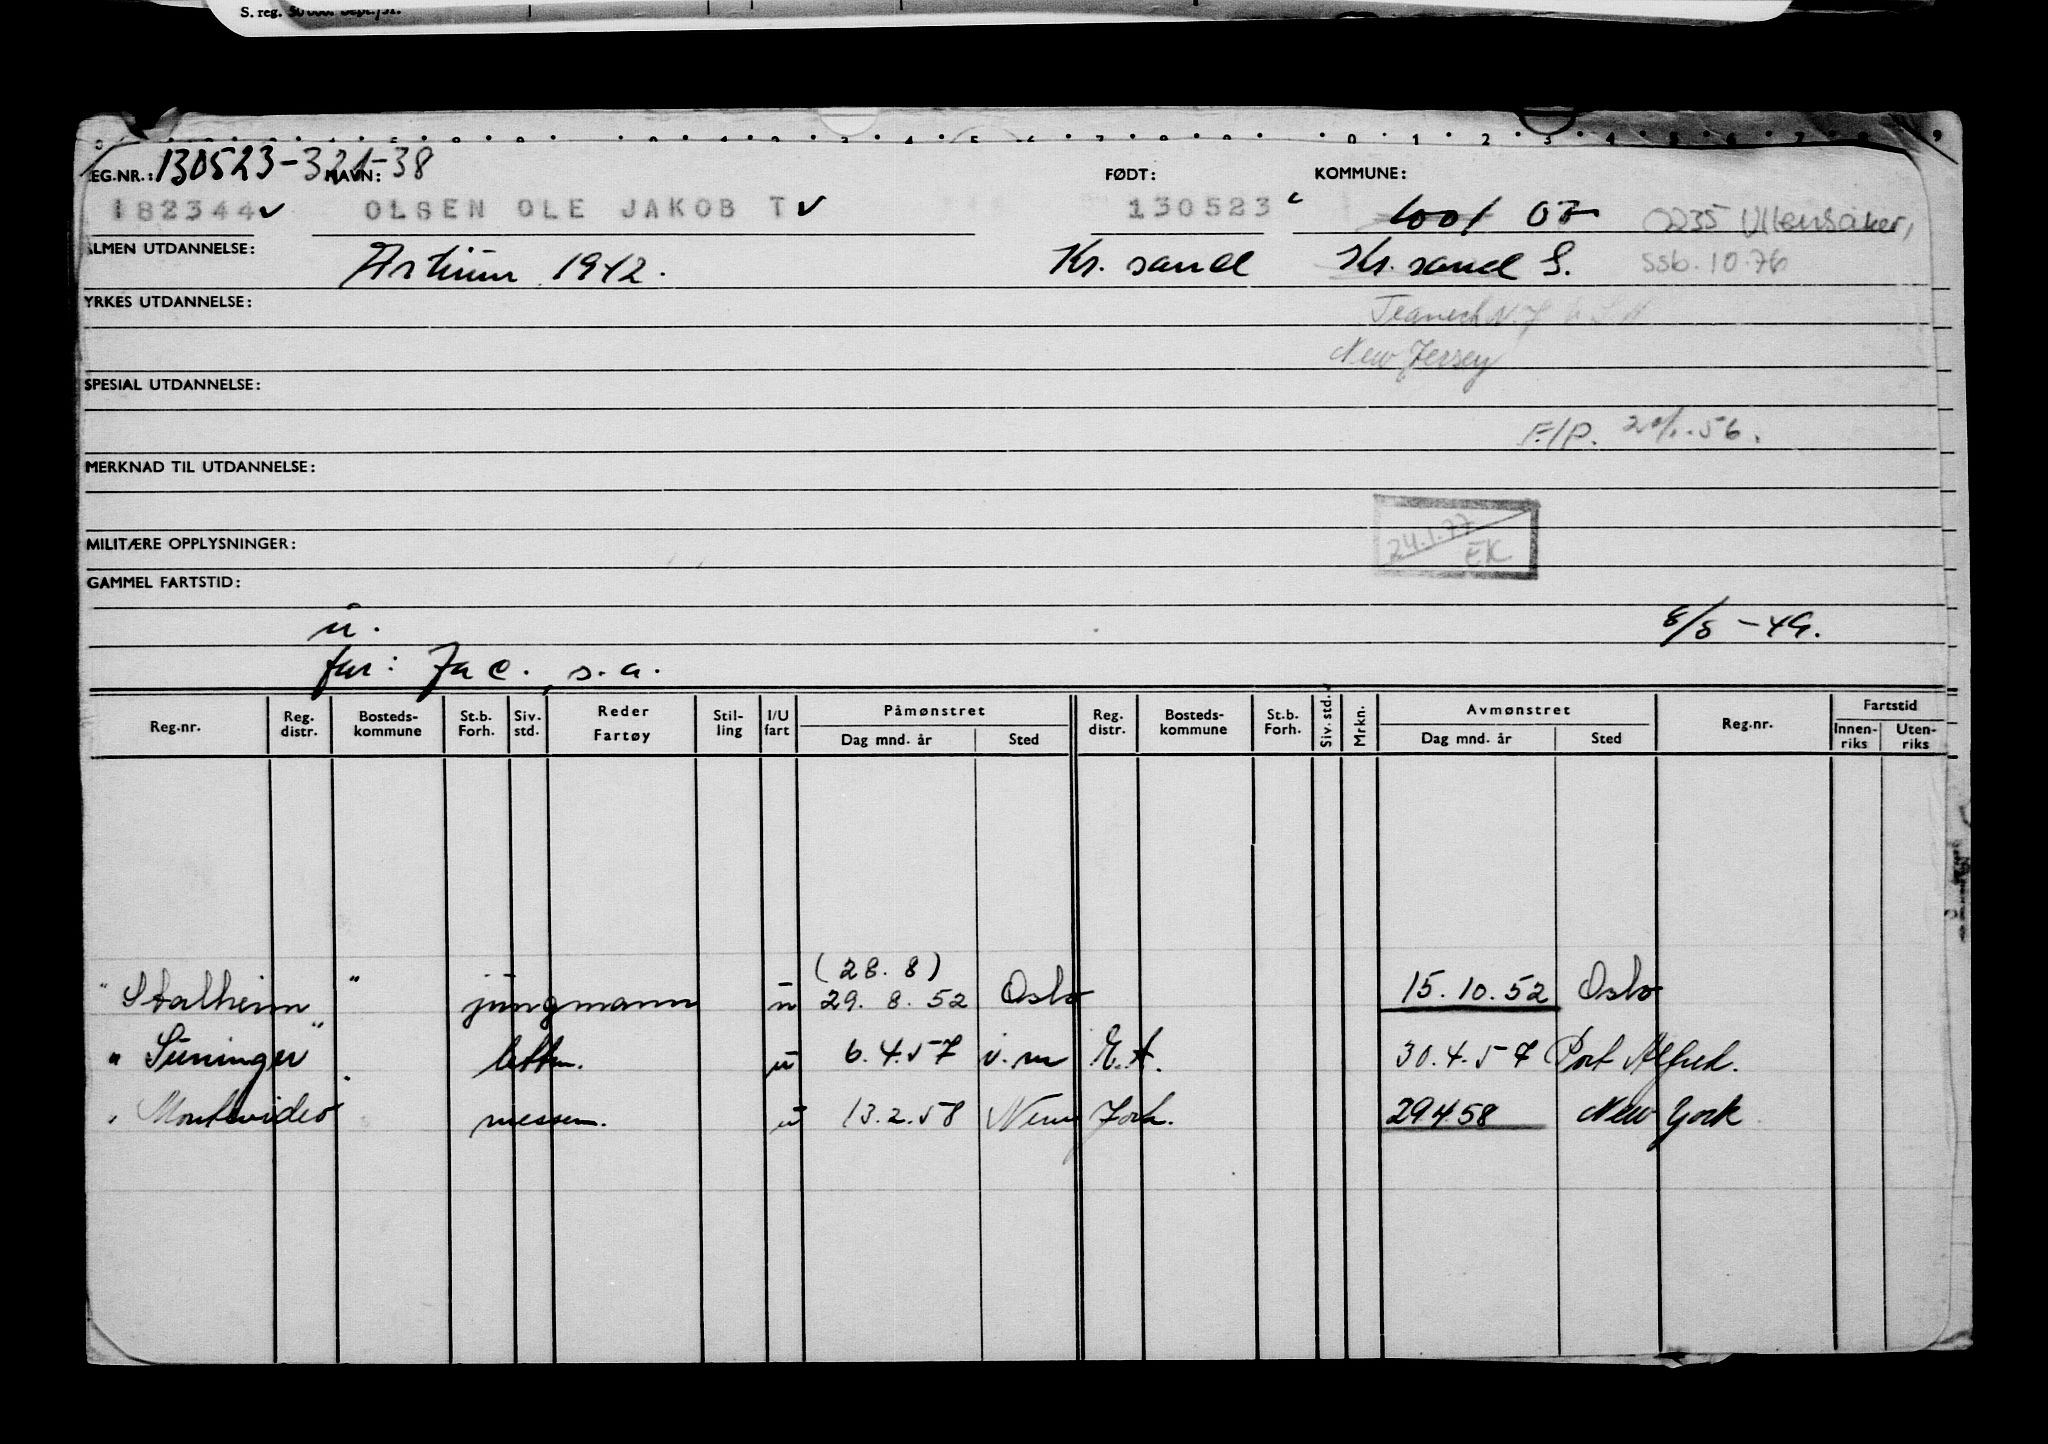 S. reg. 50 000. Sept. /51.
EG.NR.: 130523-321-38 NAVN: FØDT: KOMMUNE:
182344 v OLSEN OLE JAKOB T v 130523 1001 07 0235 Ullensaker,
ALMEN UTDANNELSE: Artium 1942. Kr. sand Kr. sand S. ssb. 10.76
YRKES UTDANNELSE: Teaneck N.J.
New Jersey
SPESIAL UTDANNELSE:
F/P. 56.
MERKNAD TIL UTDANNELSE:
24.1.77
MILITÆRE OPPLYSNINGER: EK
GAMMEL FARTSTID:
u. 8/8 - 49.
far: Jac., s.a.
Reg.nr. Reg. distr. Bosteds- kommune St.b. Forh. Siv. std. Reder Fartøy Stil- ling I/U fart Påmønstret Dag mnd. år Sted Reg. distr. Bosteds- kommune St.b. Forh. Siv. std. Mrkn. Avmønstret Dag mnd. år Sted Reg.nr. Fartstid Innen- riks Uten- riks
(28. 8)
" Stalheim " jungmann u 29. 8. 52 Oslo 15. 10. 52 Oslo
" " u 6. 4. 57 30. 4. 57 Port Alfred.
" Montevideo messem. u 13. 2. 58 New York. 29 4 58 New York